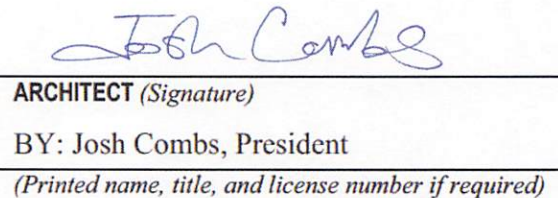 Josh Combs
ARCHITECT (Signature)
BY: Josh Combs, President
(Printed name, title, and license number if required)